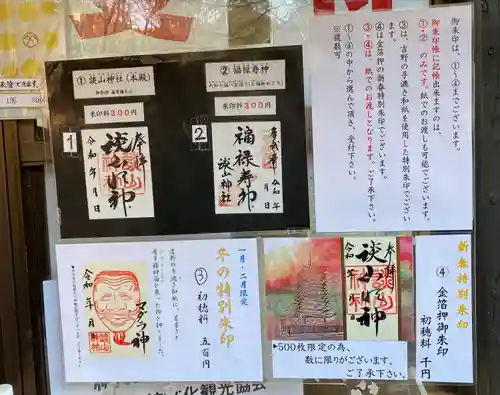 御朱印は、①~④までございます。
御朱印帳に記帳出来ますのは、
①・② のみです。紙でのお渡しも可能でございます。
③は、吉野の手漉き和紙を使用した特別朱印でございます。
④は金箔押の新春特別朱印でございます。
③・④は、紙でのお渡しとなります。ご了承下さい。
①~④の中から選んで頂き、受付下さい。
※複数可
① 談山神社(本殿)
朱印料300円
1
奉拝
談山神社
令和 年 月 日
② 福禄寿神
朱印料300円
2
福禄寿神
談山神社
令和 年
月 日
一月・二月限定
冬の特別朱印
③ 初穂料 五百円
吉野の手漉き和紙に、
マダラ神
令和 年
月 日
奉拝
談山神社
令和 年
▶500枚限定の為、
数に限りがございます。
ご了承下さい。
新春特別朱印
④ 金箔押御朱印
初穂料 千円